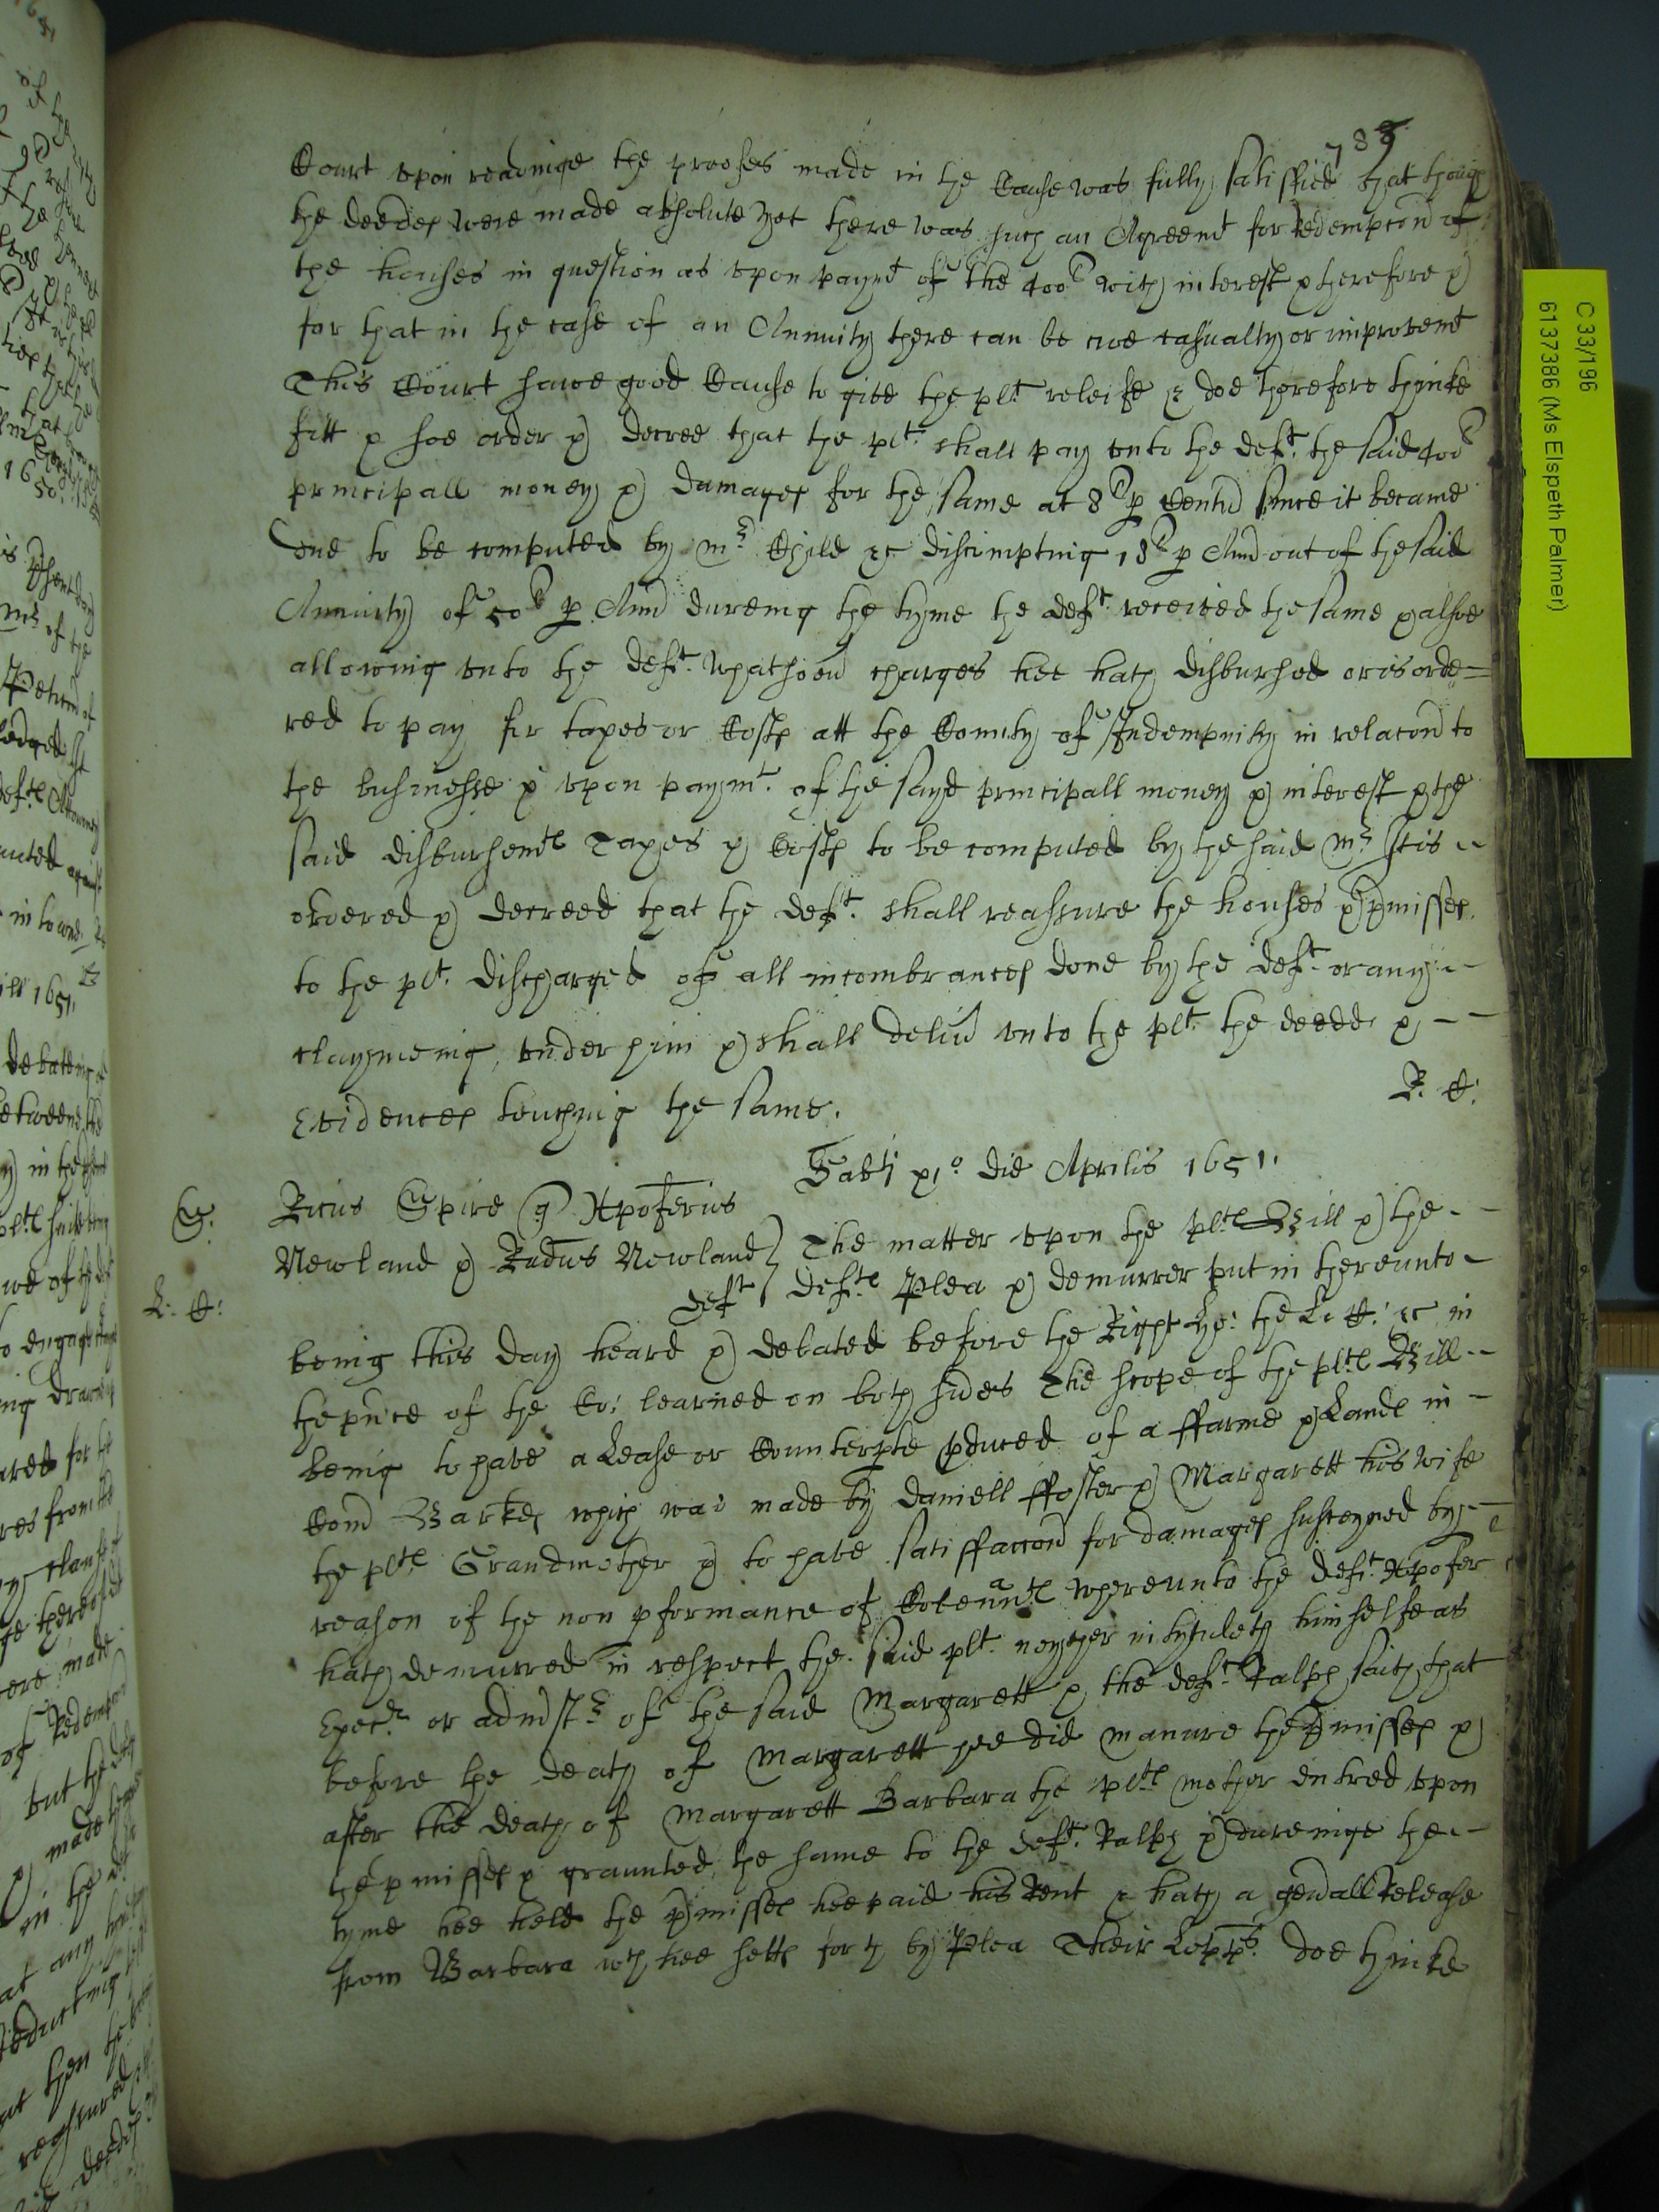 789
Court vpon readinge the proofes made in the Cause was fully satisfied that though
the deedes were made absolute yet there was such an Agreemt for Redempcon of
the houses in question as vpon paymt of the 400l with interest & therefore &
for that in the case of an Annuity there can be noe casualty or improvemt
This Court sawe good Cause to give the plt releife & doe therefore thinke
fitt & soe order & decree that the plt. shall pay vnto the deft. the said 400l
principall money & damages for the same at 8l p Centu since it became
due to be computed by mr Child &c discompting 18l p Ann out of the said
Annuity of 50l p Ann dureing the tyme the deft. received the same & alsoe
allowing vnto the deft. whatsoeu charges hee hath disbursed or is orde=
red to pay for taxes or Costs att the Comtty of Indempnity in relacon to
the businesse & vpon paymt. of the sayd principall money & interest & the
said disbursemts Taxes & Costs to be computed by the said mr Itis
ordered & decreed that the deft. shall reassure the houses & pmisses
to the plt. discharged of all incombrances done by the deft. or any
claymeing vnder him & shall deliu vnto the plt. the deeds &
Evidences touching the same.
R. C:
Sabti xio die Aprilis 1651.
S:
Ricus Spire q Xpoferus
Newland & Radus Newland
deft
The matter vpon the plts Bill & the
defts Plea & demurrer put in thereunto
L: C:
being this day heard & debated before the Right Ho: the L: C: &c in
the pnce of the Co: learned on both sides The scope of the plts Bill
being to have a Lease or Counterpte pduced of a ffarme & Lands in
Com Barkes which was made by Daniell ffoster & Margarett his wife
the plts Grandmother & to have satisfaccon for damages susteyned by
reason of the non pformance of Covenants whereunto the deft. Xpofer
hath demurred in respect the said plt. neyther intytuleth himselfe as
Execr or admstr of the said Margarett & the deft. Ralph saith that
before the death of Margarett hee did manure the pmisses &
after the death of Margarett Barbara the plts mother entred vpon
the pmisses & graunted the same to the deft. Ralph & dureinge the
tyme hee held the pmisses hee paid his Rent & hath a genall Release
from Barbara wch hee setts forth by Plea Their Lopps. doe thinke
C 33/196
6137386 (Ms Elspeth Palmer)